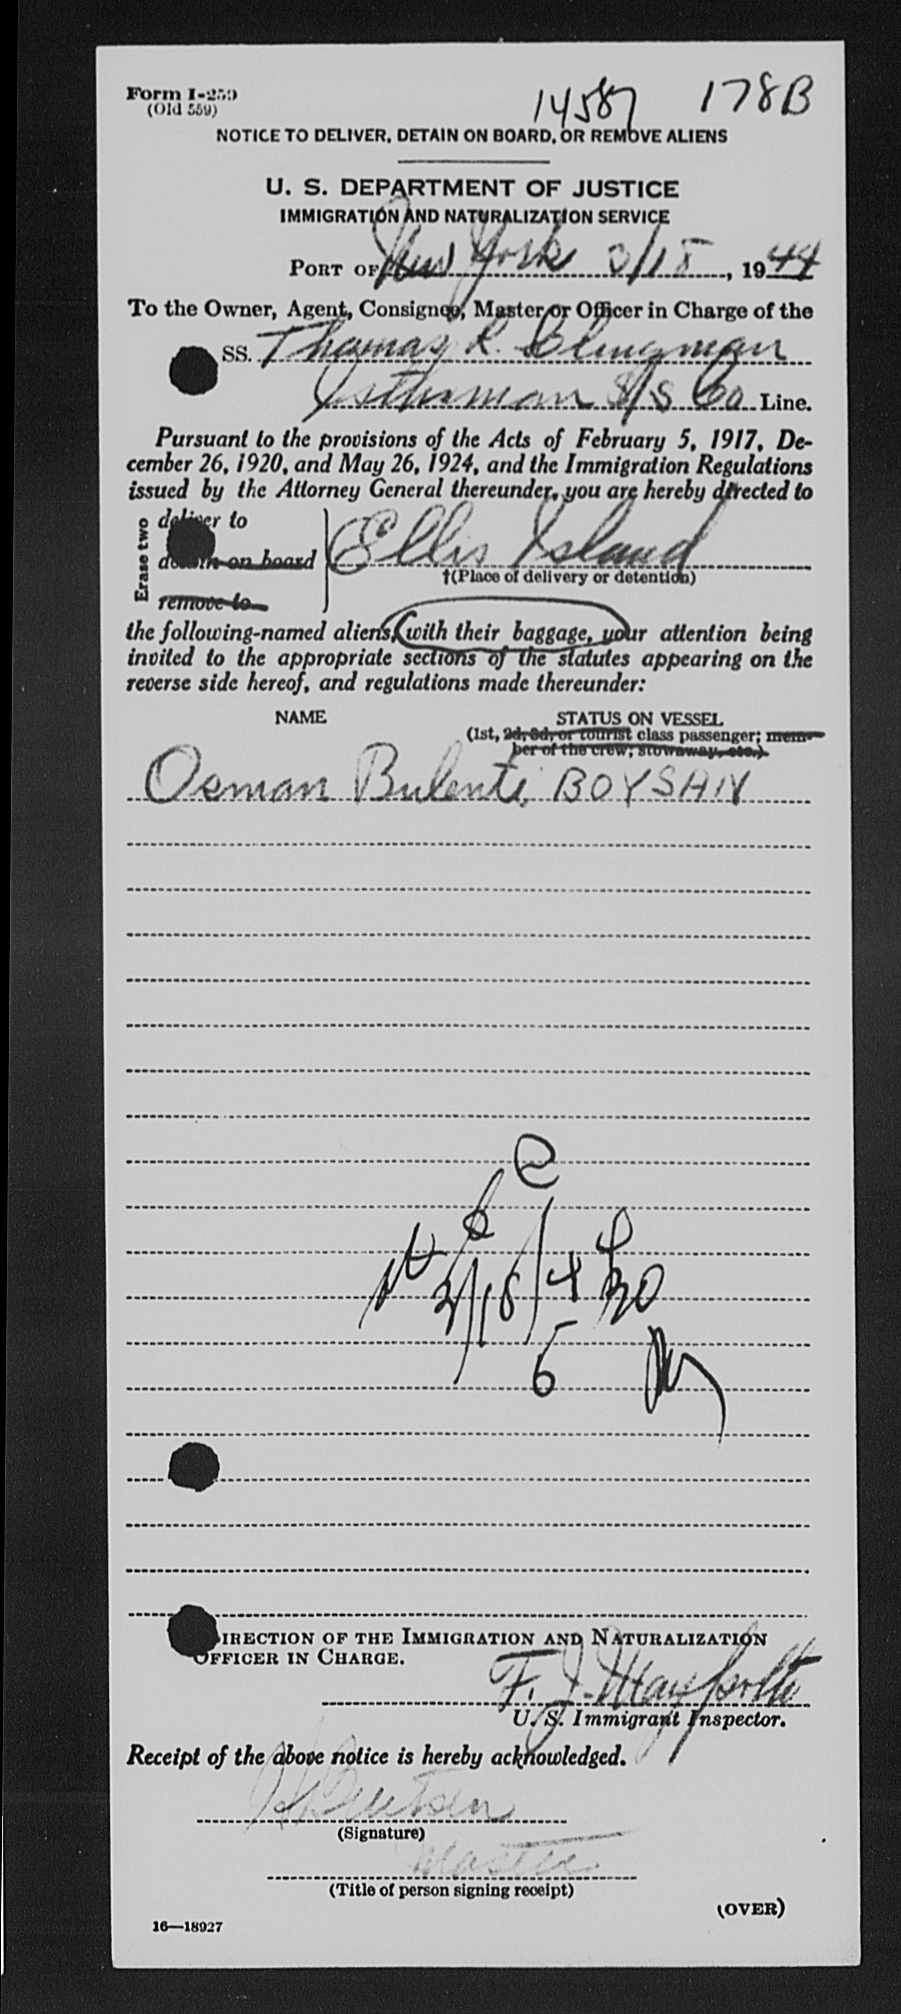 Form I-259
(Old 559)
14587 178B
NOTICE TO DELIVER, DETAIN ON BOARD, OR REMOVE ALIENS
U. S. DEPARTMENT OF JUSTICE
IMMIGRATION AND NATURALIZATION SERVICE
PORT OF New York 3/18, 1944
To the Owner, Agent, Consignee, Master or Officer in Charge of the
SS. Thomas L. Clingman
Isthmian S/S Co Line.
Pursuant to the provisions of the Acts of February 5, 1917, De-
cember 26, 1920, and May 26, 1924, and the Immigration Regulations
issued by the Attorney General thereunder, you are hereby directed to
Erase two
deliver to
detain on board
remove to
Ellis Island
†(Place of delivery or detention)
the following-named aliens, with their baggage, your attention being
invited to the appropriate sections of the statutes appearing on the
reverse side hereof, and regulations made thereunder:
NAME STATUS ON VESSEL
(1st, 2d, 3d, or tourist class passenger; mem-
ber of the crew; stowaway, etc.)
Osman Bulenti BOYSAN
DIRECTION OF THE IMMIGRATION AND NATURALIZATION
OFFICER IN CHARGE.
F. J.
U. S. Immigrant Inspector.
Receipt of the above notice is hereby acknowledged.
(Signature)
Master
(Title of person signing receipt)
(OVER)
16—18927